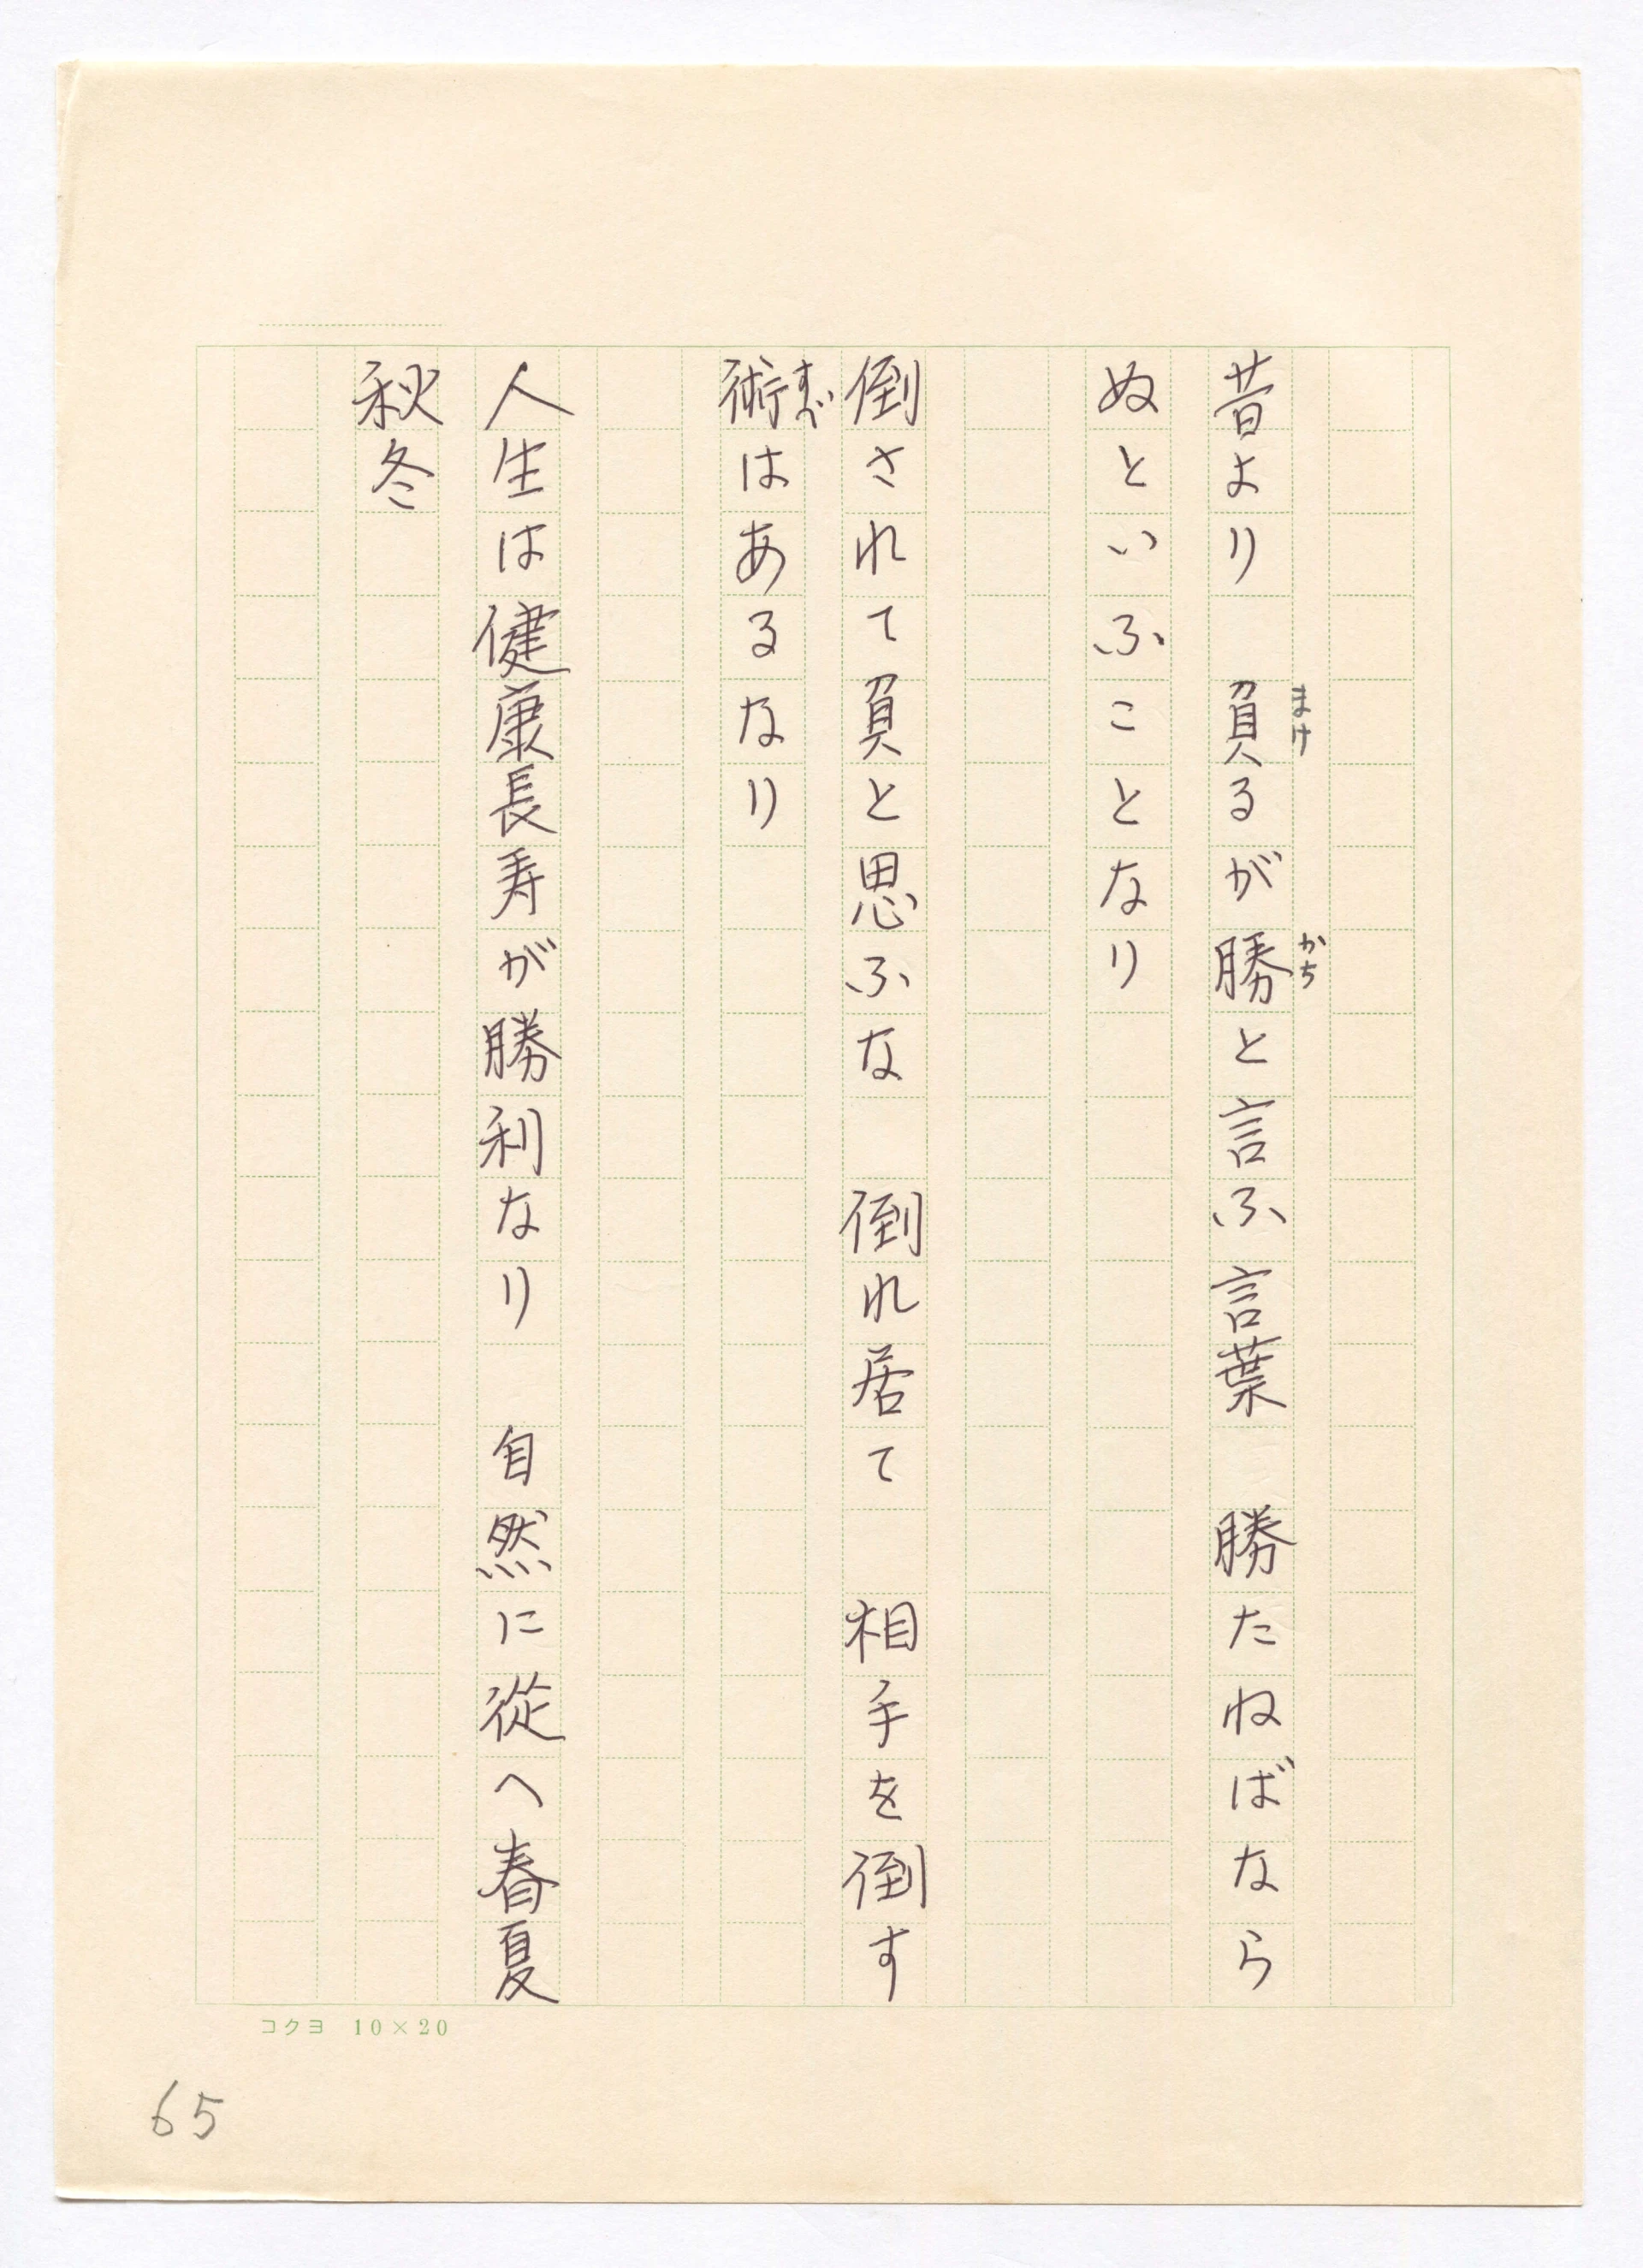 昔より　負るが勝と言ふ言葉　勝たねばなら
まけ
かち
ぬといふことなり
倒されて負と思ふな　倒れ居て　相手を倒す
術はあるなり
すべ
人生は健康長寿が勝利なり　自然に従へ春夏
秋冬
コクヨ 10×20
65